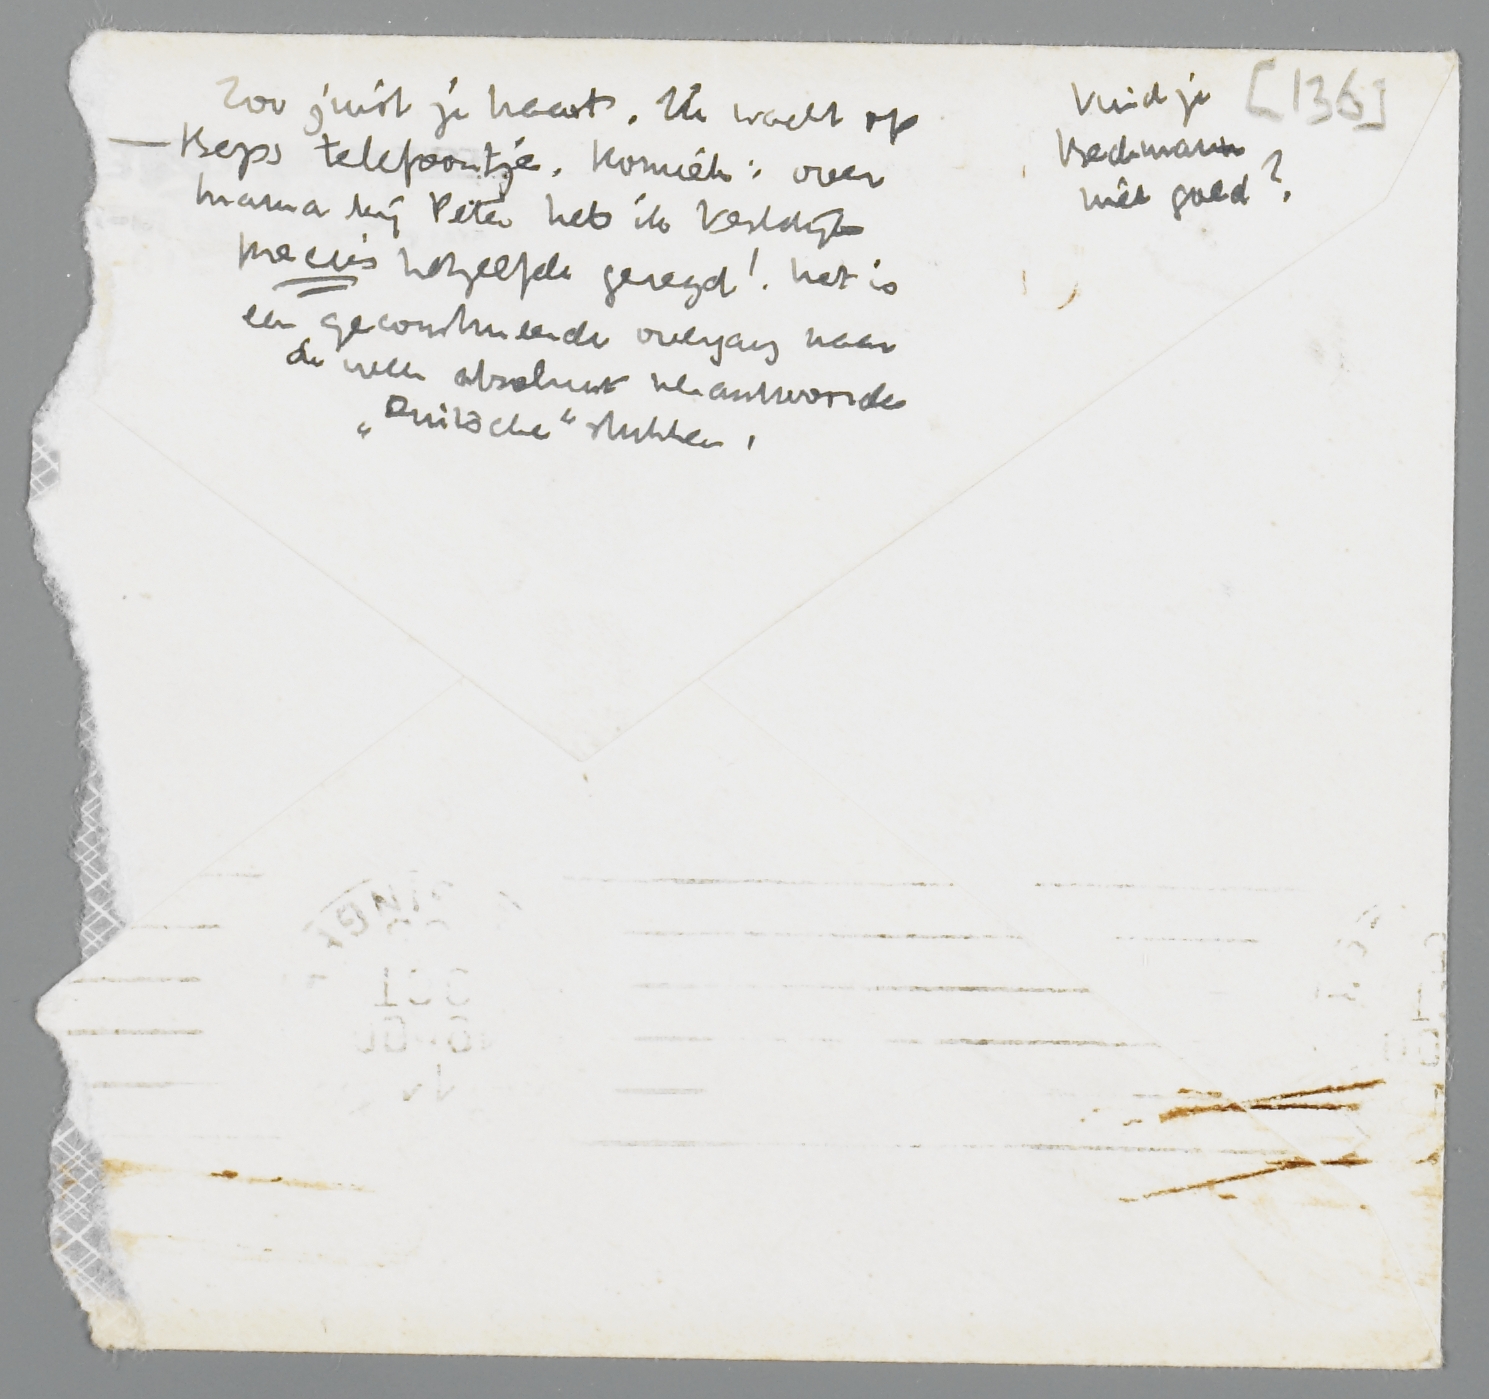 Zoo juist je kaart. Ik wacht op
— Beps telefoontje. Komiek: over
mama bij Peter heb ik Vestdijk
precies hetzelfde gezegd! het is
een geconstrueerde overgang naar
de weer absoluut verantwoorde
„Duitsche“ stukken.
Vind je
Beckmann
niet goed?
[136]
OCT